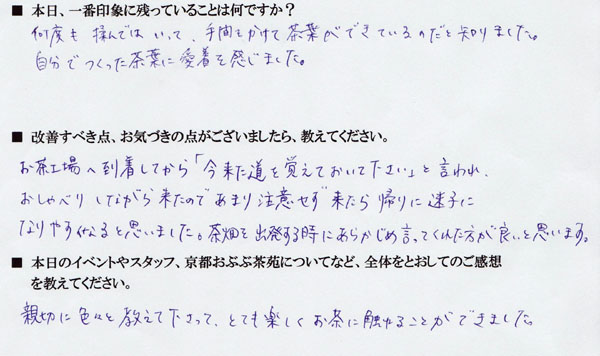 ■ 本日、一番印象に残っていることは何ですか？
何度も揉んではいって、手間をかけて茶葉ができているのだと知りました。
自分でつくった茶葉に愛着を感じました。
■ 改善すべき点、お気づきの点がございましたら、教えてください。
お茶工場へ到着してから「今来た道を覚えておいて下さい」と言われ、
おしゃべりしながら来たのであまり注意せず来たら帰りに迷子に
なりやすくなると思いました。茶畑を出発する時にあらかじめ言ってくれた方が良いと思います。
■ 本日のイベントやスタッフ、京都おぶぶ茶苑についてなど、全体をとおしてのご感想
を教えてください。
親切に色々と教えて下さって、とても楽しくお茶に触れることができました。